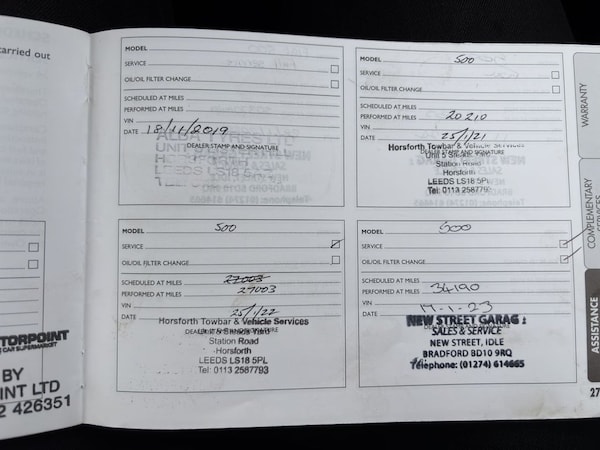 carried out
MODEL
SERVICE
OIL/OIL FILTER CHANGE
SCHEDULED AT MILES
PERFORMED AT MILES
VIN
DATE 18/11/2019
DEALER STAMP AND SIGNATURE
LEEDS LS18
MODEL 500
SERVICE
OIL/OIL FILTER CHANGE
SCHEDULED AT MILES
PERFORMED AT MILES 20210
VIN
DATE 25/1/21
Horsforth Towbar & Vehicle Services
DEALER STAMP AND SIGNATURE
Station Road
Horsforth
LEEDS LS18 5PL
Tel: 0113 2587793
MODEL 500
SERVICE
OIL/OIL FILTER CHANGE
SCHEDULED AT MILES 27003
PERFORMED AT MILES 27003
VIN
DATE 25/1/22
Horsforth Towbar & Vehicle Services
DEALER STAMP AND SIGNATURE
Station Road
Horsforth
LEEDS LS18 5PL
Tel: 0113 2587793
MODEL 500
SERVICE
OIL/OIL FILTER CHANGE
SCHEDULED AT MILES
PERFORMED AT MILES 34190
VIN
DATE 17-1-23
NEW STREET GARAG
SALES & SERVICE
NEW STREET, IDLE
BRADFORD BD10 9RQ
Telephone: (01274) 614665
WARRANTY
COMPLEMENTARY
SERVICES
ASSISTANCE
27
TORPOINT
CAR SUPERMARKET
BY
INT LTD
2 426351